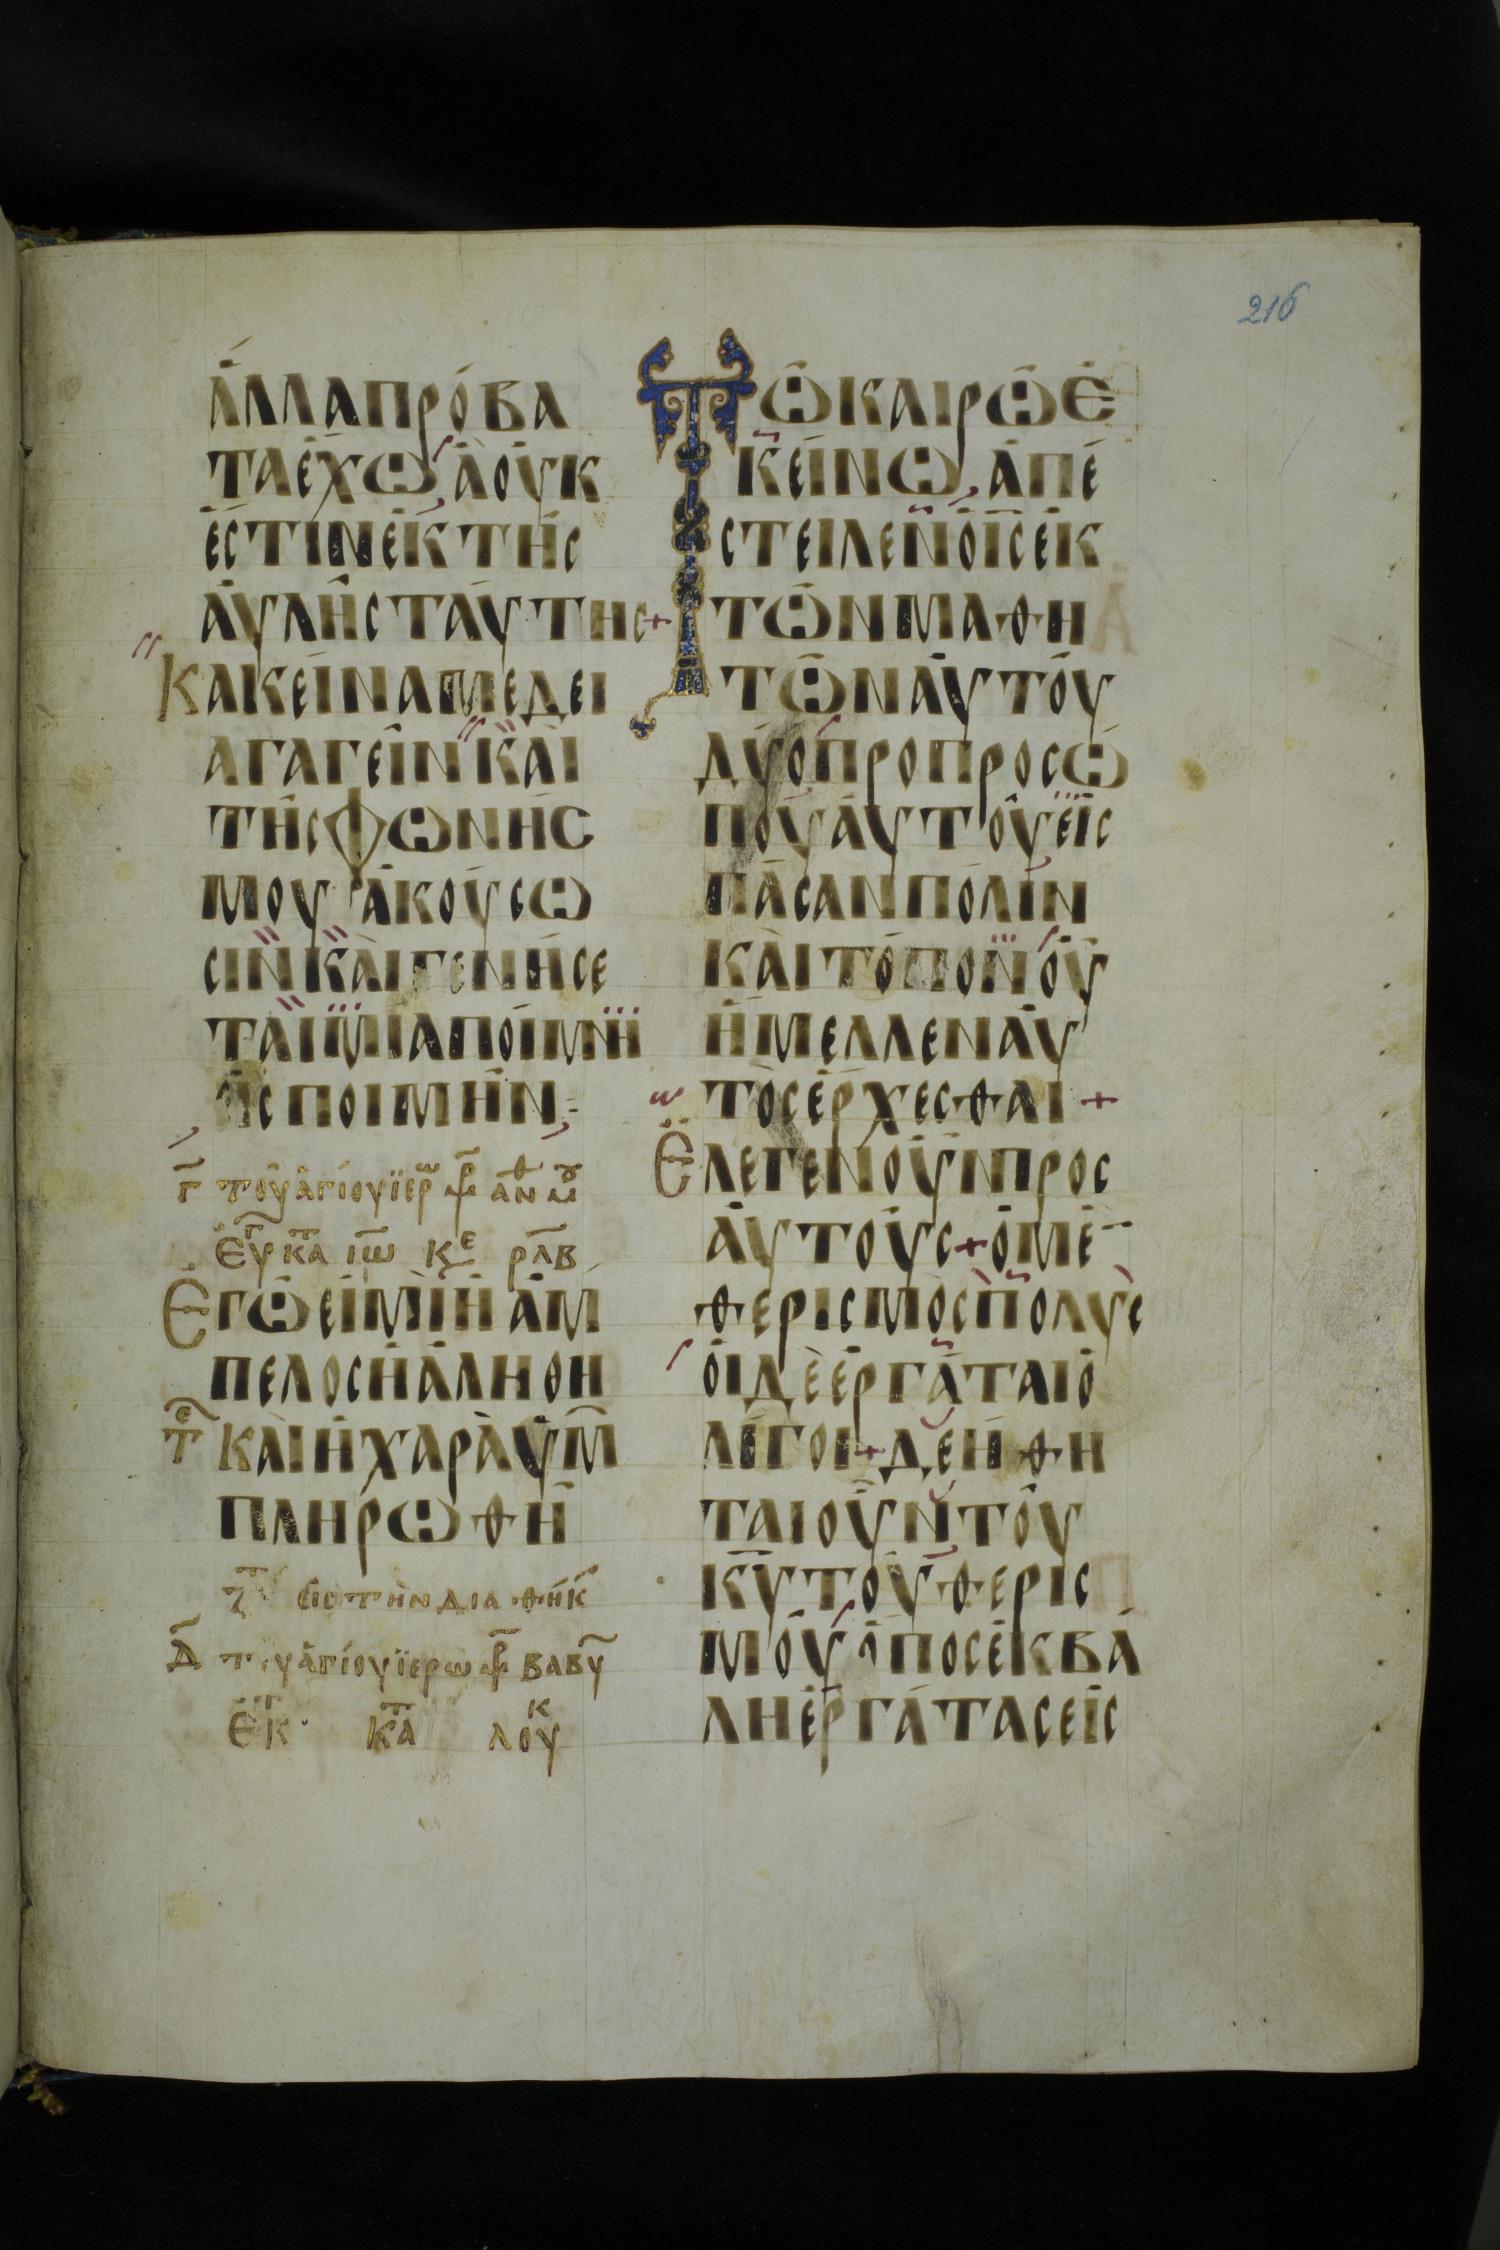 216
ἀλλαπρόβα
ταἔχω ἃοὐκ
ἔστινἐκτῆς
ἀυλῆςταύτης+
Κακεῖναμεδεῖ
αγαγεῖν καὶ
τῆςφωνῆς
μου ἀκούσω
σιν καὶγενήσε
ταιμίαποίμνη
εἷςποιμήν
γ̅ τοῦἁγίουϊερ ανθ
ἐυ κτα ιω κε ρλβ
Ἐγώεἰμιἡἄμ
πελοςἡἀληθη
τε καὶἡχαρὰὑμ
πληρωθῆ
ζτ εἰςτηνδιαθήκ
δ̅ τ υἁγίουϊερω βαβυ
ἐκ κτα λουκ
Τῶκαιρῶἐ
κείνω, ἀπέ
στειλενὁι̅ς̅ἐκ
τῶνμαθη
τῶναὐτοῦ
δύοπροπροσώ
πουἀυτοῦεἰς
πᾶσανπόλιν
καὶτόπονοὗ
ἤμελλεναὐ
τὸςἔρχεσθαι+
Ἔλεγενοὖνπρος
ἀυτούς+ὁμὲ̅
θερισμὸςπολὺς
ὁιδὲἐργάταιὀ
λίγοι+δεήθη
ταιοὖντοῦ
κ̅υ̅τοῦθερισ
μοῦὅποσἐκβά
ληἐργάταςεἰς